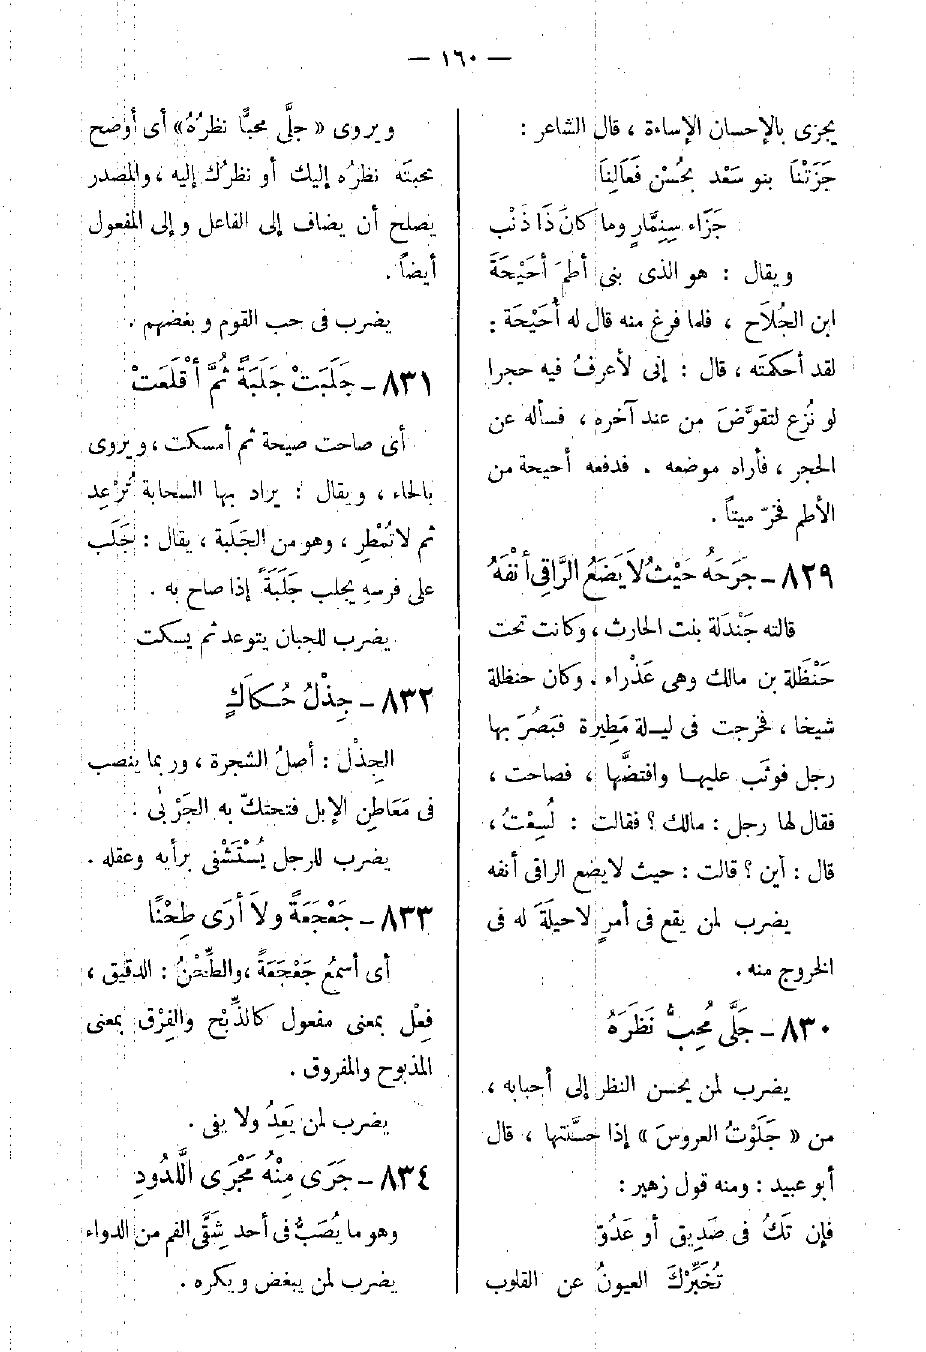 — ١٦٠ —
يجزى بالإحسان الإساءة ، قال الشاعر :
جَزَتْنَا بنو سَعْد بحُسْن فَعَالِنَا
جَزَاء سِنِمَّارٍ وما كانَ ذَا ذَنْب
ويقال : هو الذى بنى أطمَ أحَيْحَةَ
ابن الجُلَاح ، فلما فرغ منه قال له أُحَيْحَة :
لقد أحكمتَه ، قال : إنى لأعرفُ فيه حجرا
لو نُزع لتقوَّضَ من عند آخره ، فسأله عن
الحجر ، فأراه موضعه . فدفعه أحيحة من
الأطم فخرّ ميتاً .
٨٢٩ – جَرَحَهُ حَيْثُ لاَ يَضَعُ الرَّاقِى أنْفَهُ
قالته جَنْدَلة بنت الحارث ، وكانت تحت
حَنْظَلة بن مالك وهى عَذْراء . وكان حنظلة
شيخا ، فخرجت فى ليلة مَطِيرة فَبَصُرَ بها
رجل فوثَب عليها وافتضَّها ، فصاحت ،
فقال لها رجل : مالك ؟ فقالت : لُسِعْتُ ،
قال : أين ؟ قالت : حيث لايضع الراقى أنفه
يضرب لمن يقع فى أمرٍ لاحيلَةَ له فى
الخروج منه .
٨٣٠ – جَلَّى مُحِبٌّ نَظَرَهُ
يضرب لمن يحسن النظر إلى أحبابه ،
من « جَلَوْتُ العروسَ » إذا حسَّنتها ، قال
أبو عبيد : ومنه قول زهير :
فإن تَكُ فى صَدِيق أو عَدُوّ
تُخَبِّرْكَ العيونُ عن القلوب
ويروى « جلَّى محبًّا نظرُهُ » أى أوضح
محبتَه نظرُه إليك أو نظرُك إليه ، والمصدر
يصلح أن يضاف إلى الفاعل وإلى المفعول
أيضاً .
يضرب فى حب القوم وبغضهم .
٨٣١ – جَلَبَتْ جَلَبَةً ثُمَّ أقْلَعَتْ
أى صاحت صيحة ثم أمسكت ، ويروى
بالحاء ، ويقال : يراد بها السحابة تُرْعِد
ثم لاتُمْطِر ، وهو من الجَلَبة ، يقال : جَلَب
على فرسهِ يجلب جَلَبَةً إذا صاح به .
يضرب للجبان يتوعد ثم يسكت
٨٣٢ – جِذْلُ حُكَاكٍ
الجِذْل : أصلُ الشجرة ، وربما ينصب
فى مَعَاطِن الإبل فتحتكّ به الجَرْبى .
يضرب للرجل يُسْتَشْفى برأيه وعقله .
٨٣٣ – جَعْجَعَةً ولاَ أرَى طِحْنًا
أى أسمعُ جَعْجَعَةً ، والطِّحْنُ : الدقيق ،
فِعْل بمعنى مفعول كالذِّبْح والفِرْق بمعنى
المذبوح والمفروق .
يضرب لمن يَعِدُ ولا يفى .
٨٣٤ – جَرَى مِنْهُ مَجْرَى الَّلدُودِ
وهو ما يُصَبُّ فى أحد شِقَّى الفم من الدواء
يضرب لمن يبغض ويكره .